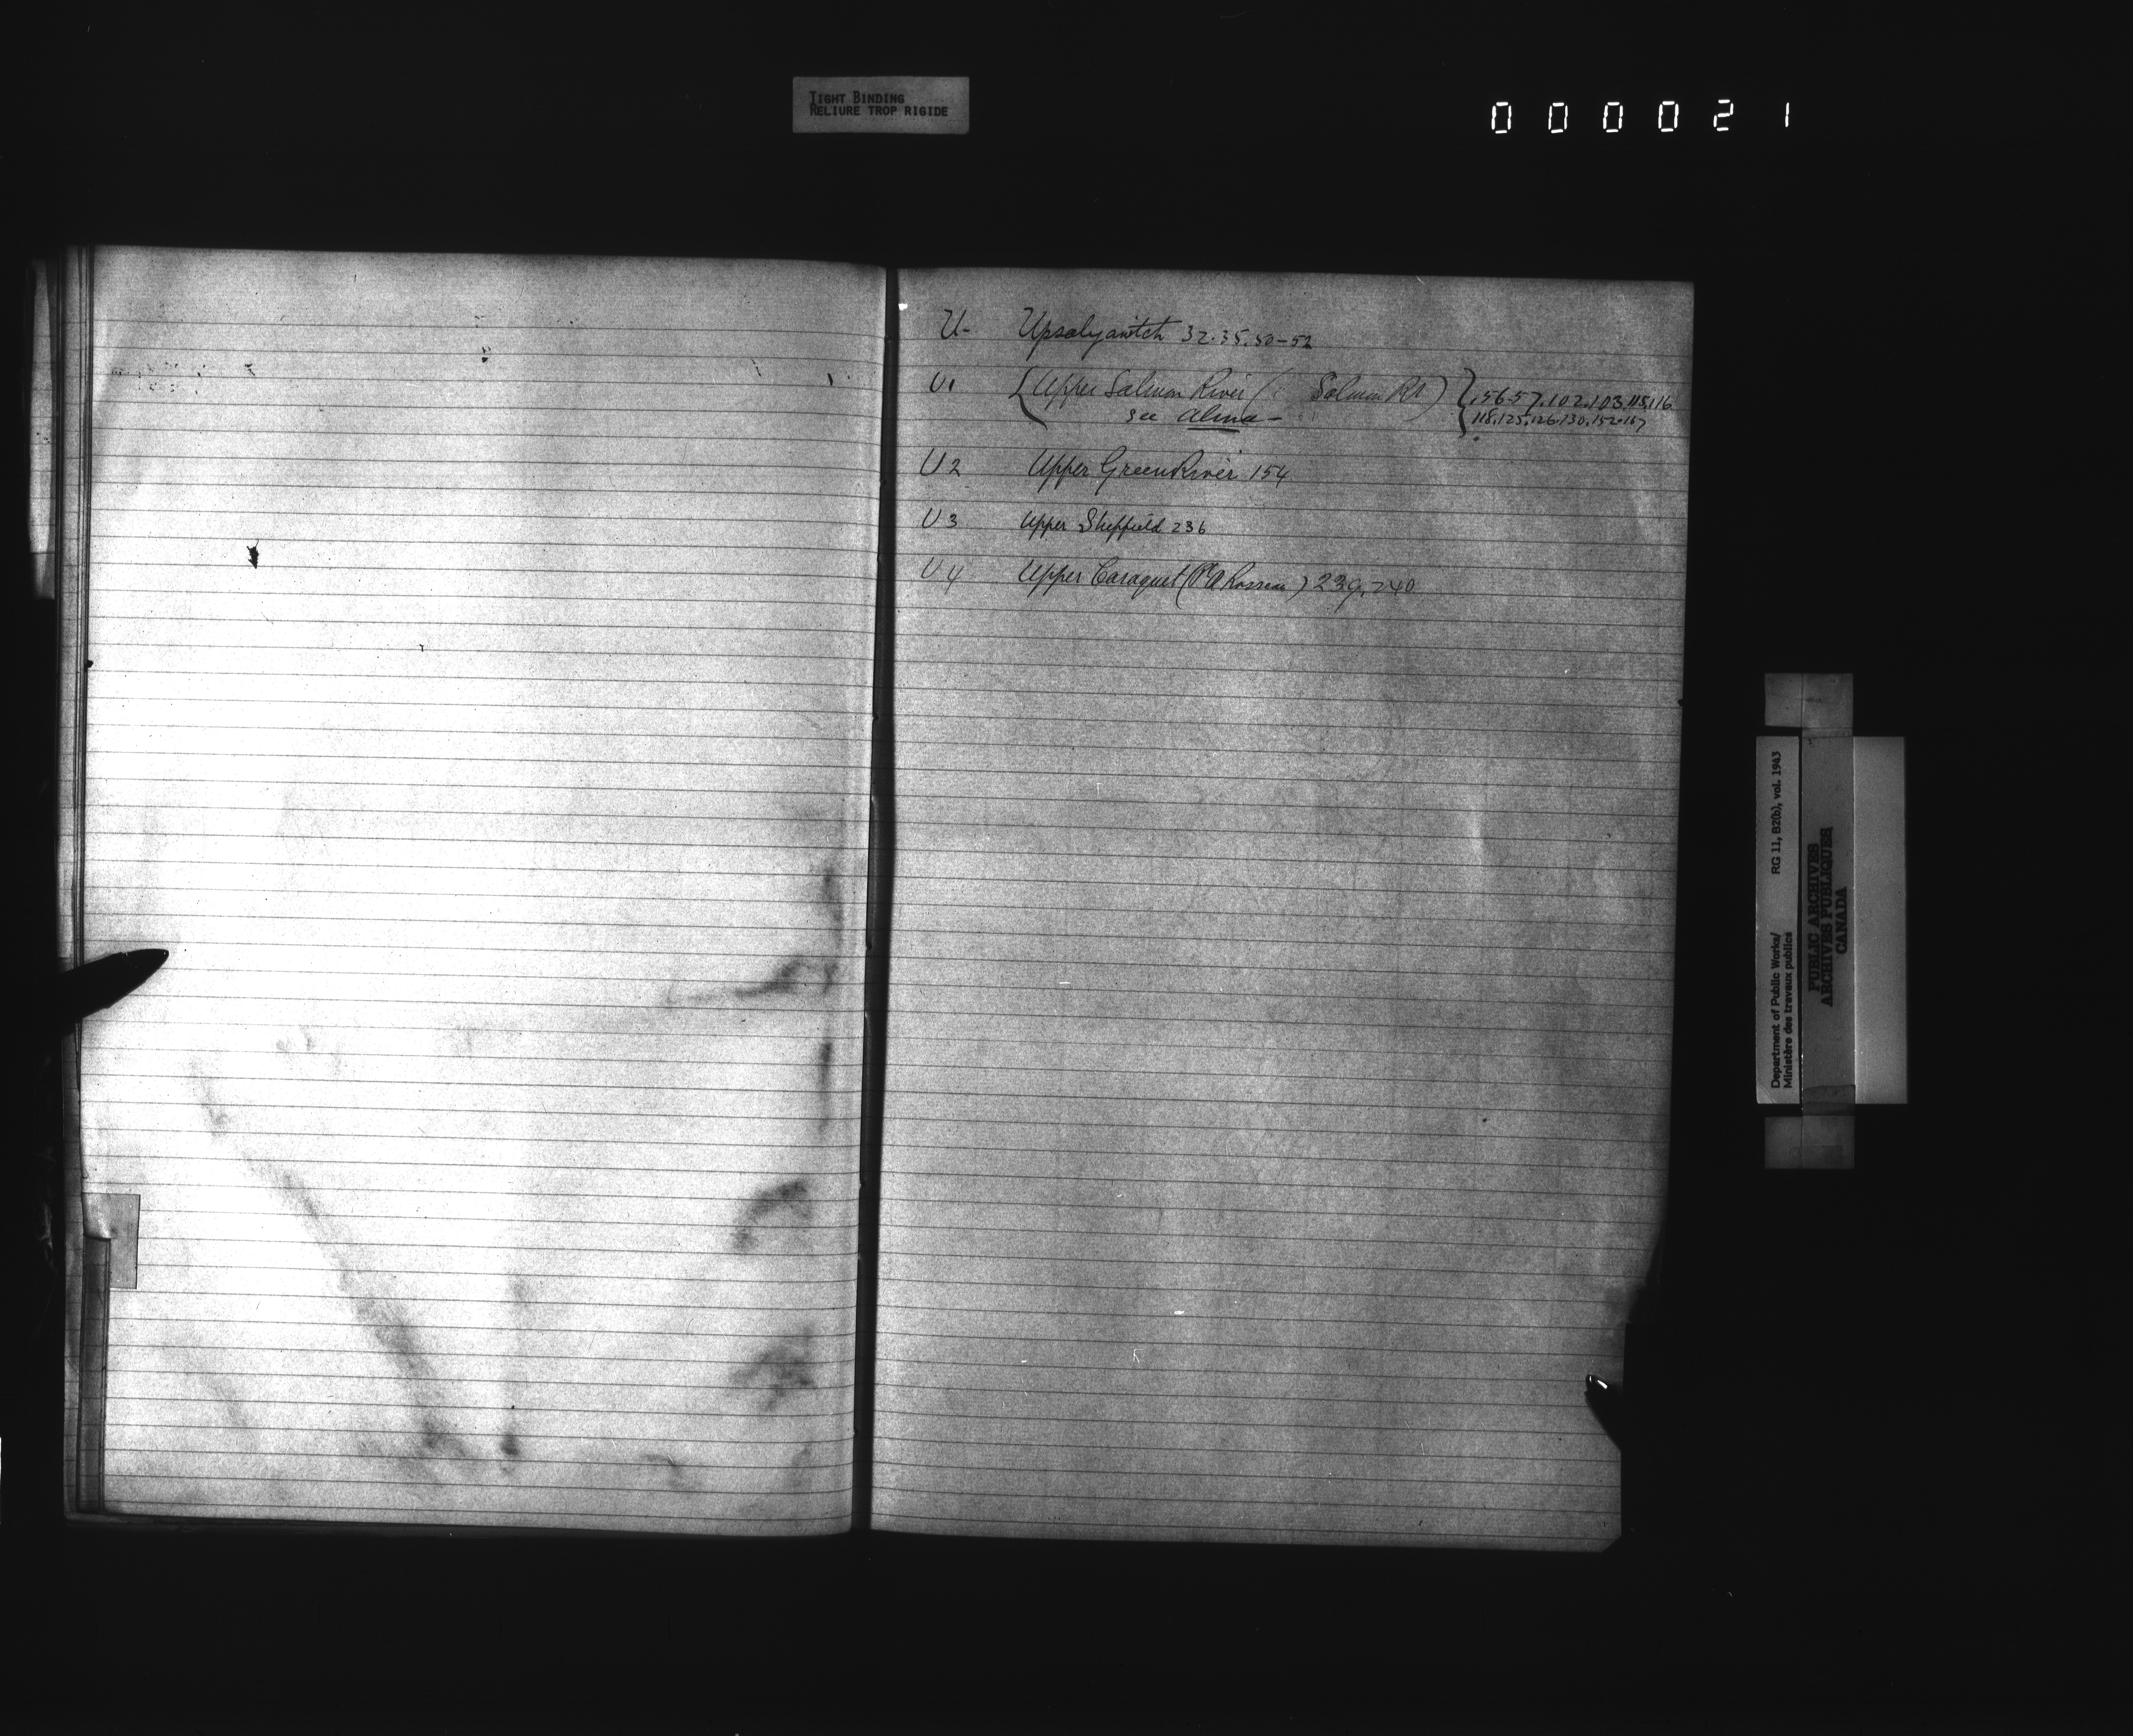 TIGHT BINDING
RELIURE TROP RIGIDE
000021
U- Upsalyawitch 32.35.50-52
U1 Upper Salmon River ( Salmon Rr) 56-57.102.103.115.116
see Alma - 118.125.126.130.152.157
U2 Upper Green River 154
U3 Upper Sheffield 236
U4 Upper Caraquet ( ) 239.240
Department of Public Works/ RG 11, B2(b), vol. 1943
Ministère des travaux publics
PUBLIC ARCHIVES
ARCHIVES PUBLIQUES
CANADA